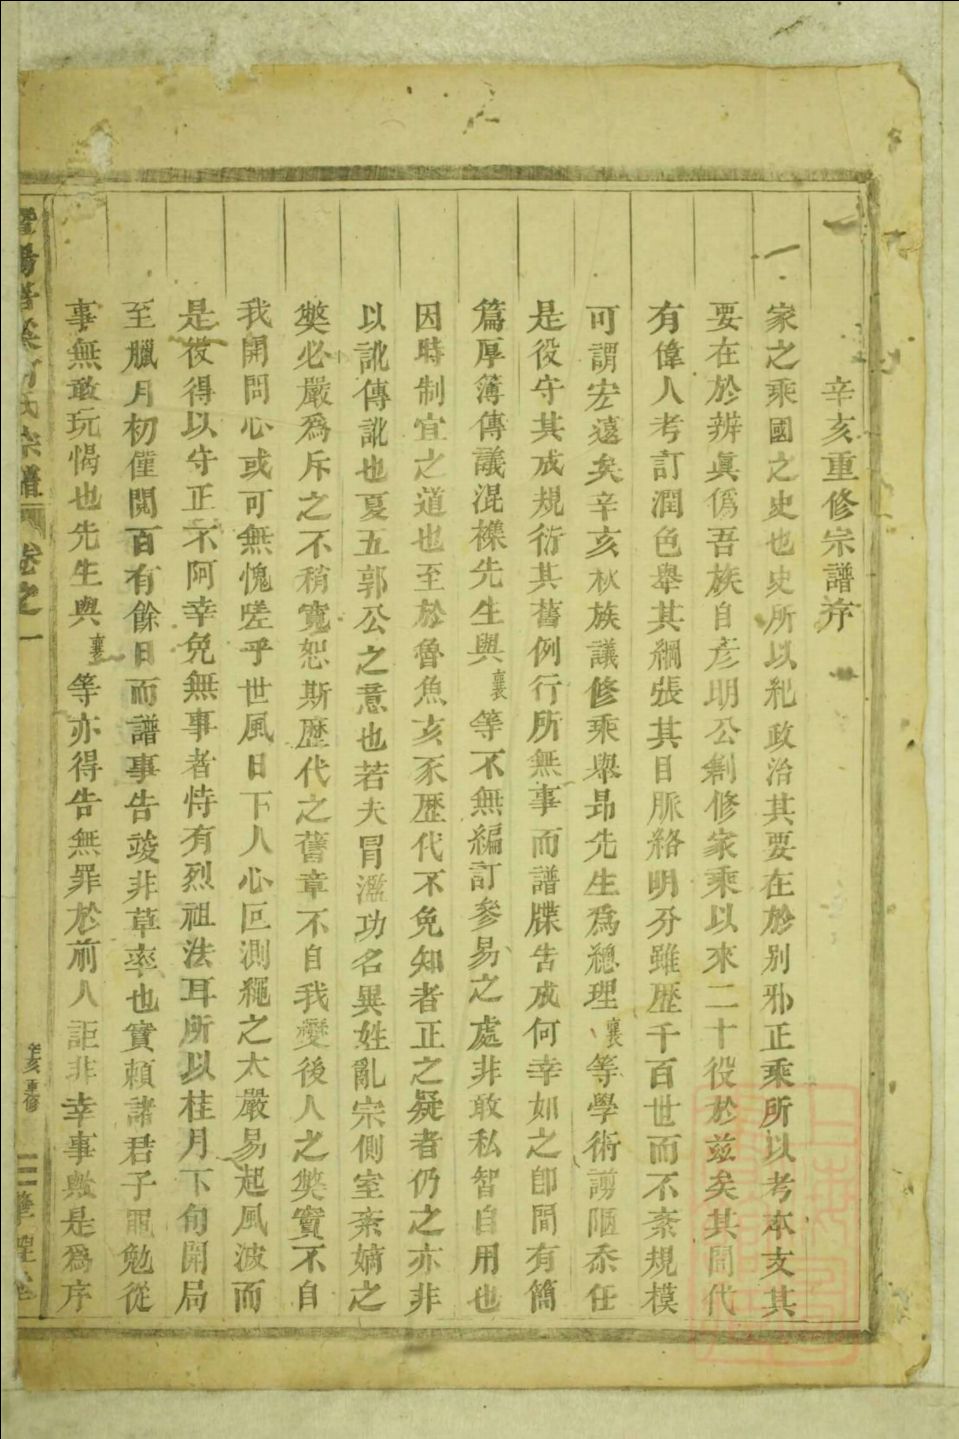 辛亥重修宗譜序
家之乘國之史也史所以紀政治其要在於別邪正乘所以考本支其
要在於辨眞僞吾族自彥明公創修家乘以來二十役於茲矣其間代
有偉人考訂潤色舉其綱張其目脈絡明分雖歷千百世而不紊規模
可謂宏遠矣辛亥秋族議修乘舉昻先生爲總理襄等學術謭陋忝任
是役守其成規衍其舊例行所無事而譜牒告成何幸如之卽間有簡
篇厚簿傳議混櫟先生與襄等不無編訂參易之處非敢私智自用也
因時制宜之道也至於魯魚亥豕歷代不免知者正之疑者仍之亦非
以訛傳訛也夏五郭公之意也若夫冒濫功名異姓亂宗側室紊嫡之
獘必嚴爲斥之不稍寬恕斯歷代之舊章不自我變後人之獘實不自
我開問心或可無愧嗟乎世風日下人心叵測繩之太嚴易起風波而
是役得以守正不阿幸免無事者恃有烈祖法耳所以桂月下旬開局
至臘月初僅閱百有餘日而譜事告竣非草率也實賴諸君子黽勉從
事無敢玩愒也先生與襄等亦得告無罪於前人詎非幸事歟是爲序
宗譜 卷之一 辛亥重修